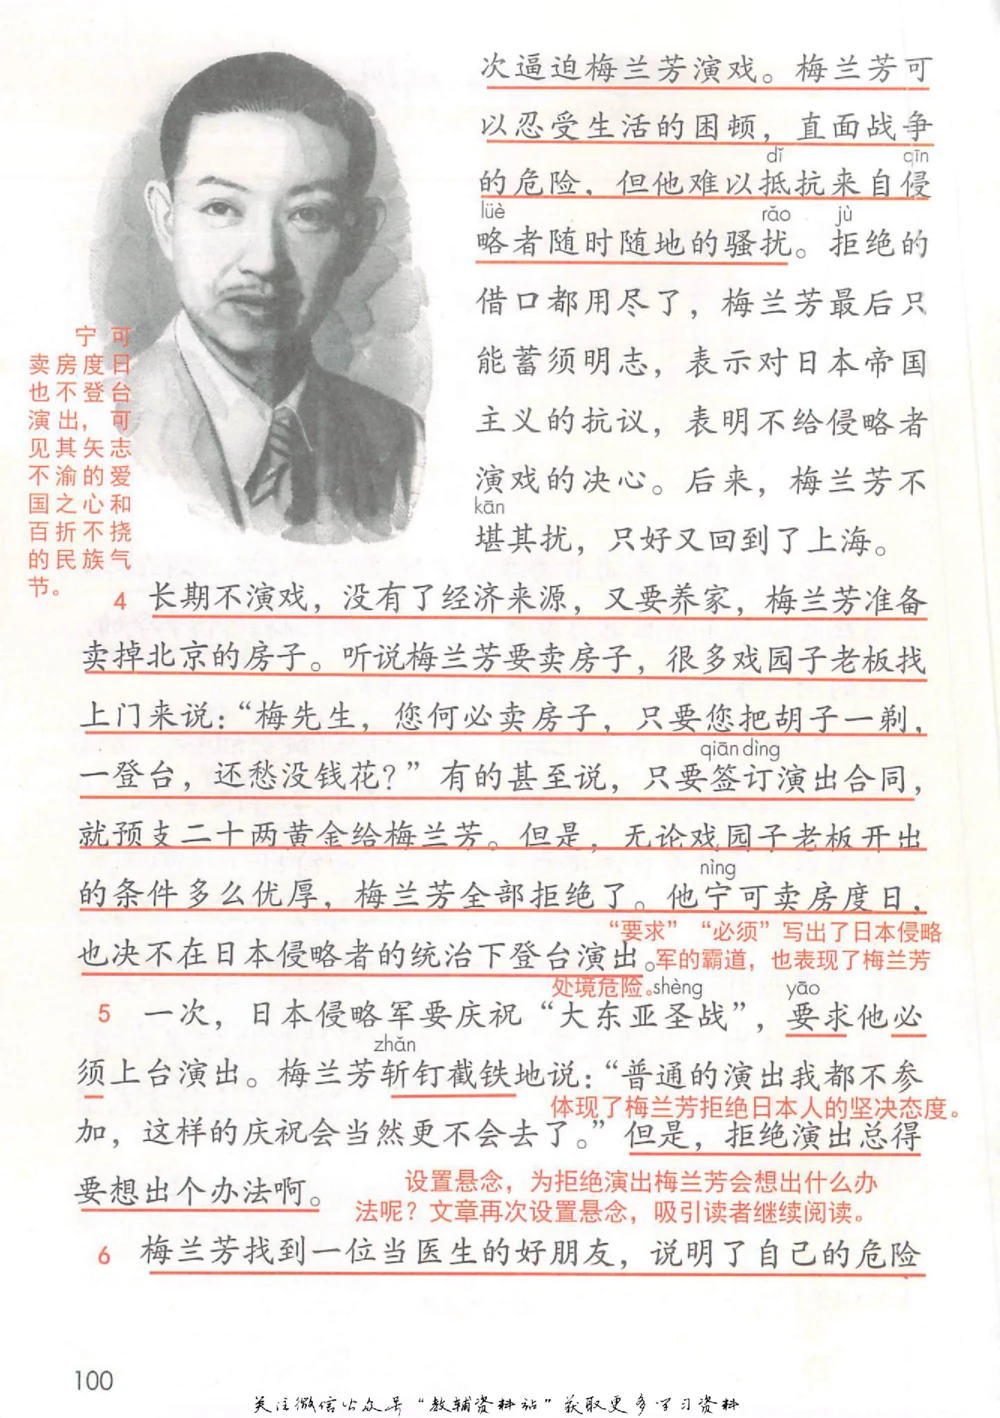 次逼迫梅兰芳演戏。梅兰芳可
以忍受生活的困顿，直面战争
dǐ qīn
的危险，但他难以抵抗来自侵
lüè rǎo jù
略者随时随地的骚扰。拒绝的
借口都用尽了，梅兰芳最后只
能蓄须明志，表示对日本帝国
主义的抗议，表明不给侵略者
演戏的决心。后来，梅兰芳不
kān
堪其扰，只好又回到了上海。
宁可
卖房度日
也不登台
演出，可
见其矢志
不渝的爱
国之心和
百折不挠
的民族气
节。
4 长期不演戏，没有了经济来源，又要养家，梅兰芳准备
卖掉北京的房子。听说梅兰芳要卖房子，很多戏园子老板找
上门来说：“梅先生，您何必卖房子，只要您把胡子一剃，
qiān dìng
一登台，还愁没钱花？”有的甚至说，只要签订演出合同，
就预支二十两黄金给梅兰芳。但是，无论戏园子老板开出
nìng
的条件多么优厚，梅兰芳全部拒绝了。他宁可卖房度日，
也决不在日本侵略者的统治下登台演出。
“要求”“必须”写出了日本侵略
军的霸道，也表现了梅兰芳
处境危险。
shèng yāo
5 一次，日本侵略军要庆祝“大东亚圣战”，要求他必
zhǎn
须上台演出。梅兰芳斩钉截铁地说：“普通的演出我都不参
体现了梅兰芳拒绝日本人的坚决态度。
加，这样的庆祝会当然更不会去了。”但是，拒绝演出总得
要想出个办法啊。
设置悬念，为拒绝演出梅兰芳会想出什么办
法呢？文章再次设置悬念，吸引读者继续阅读。
6 梅兰芳找到一位当医生的好朋友，说明了自己的危险
100
关注微信公众号“教辅资料站”获取更多学习资料